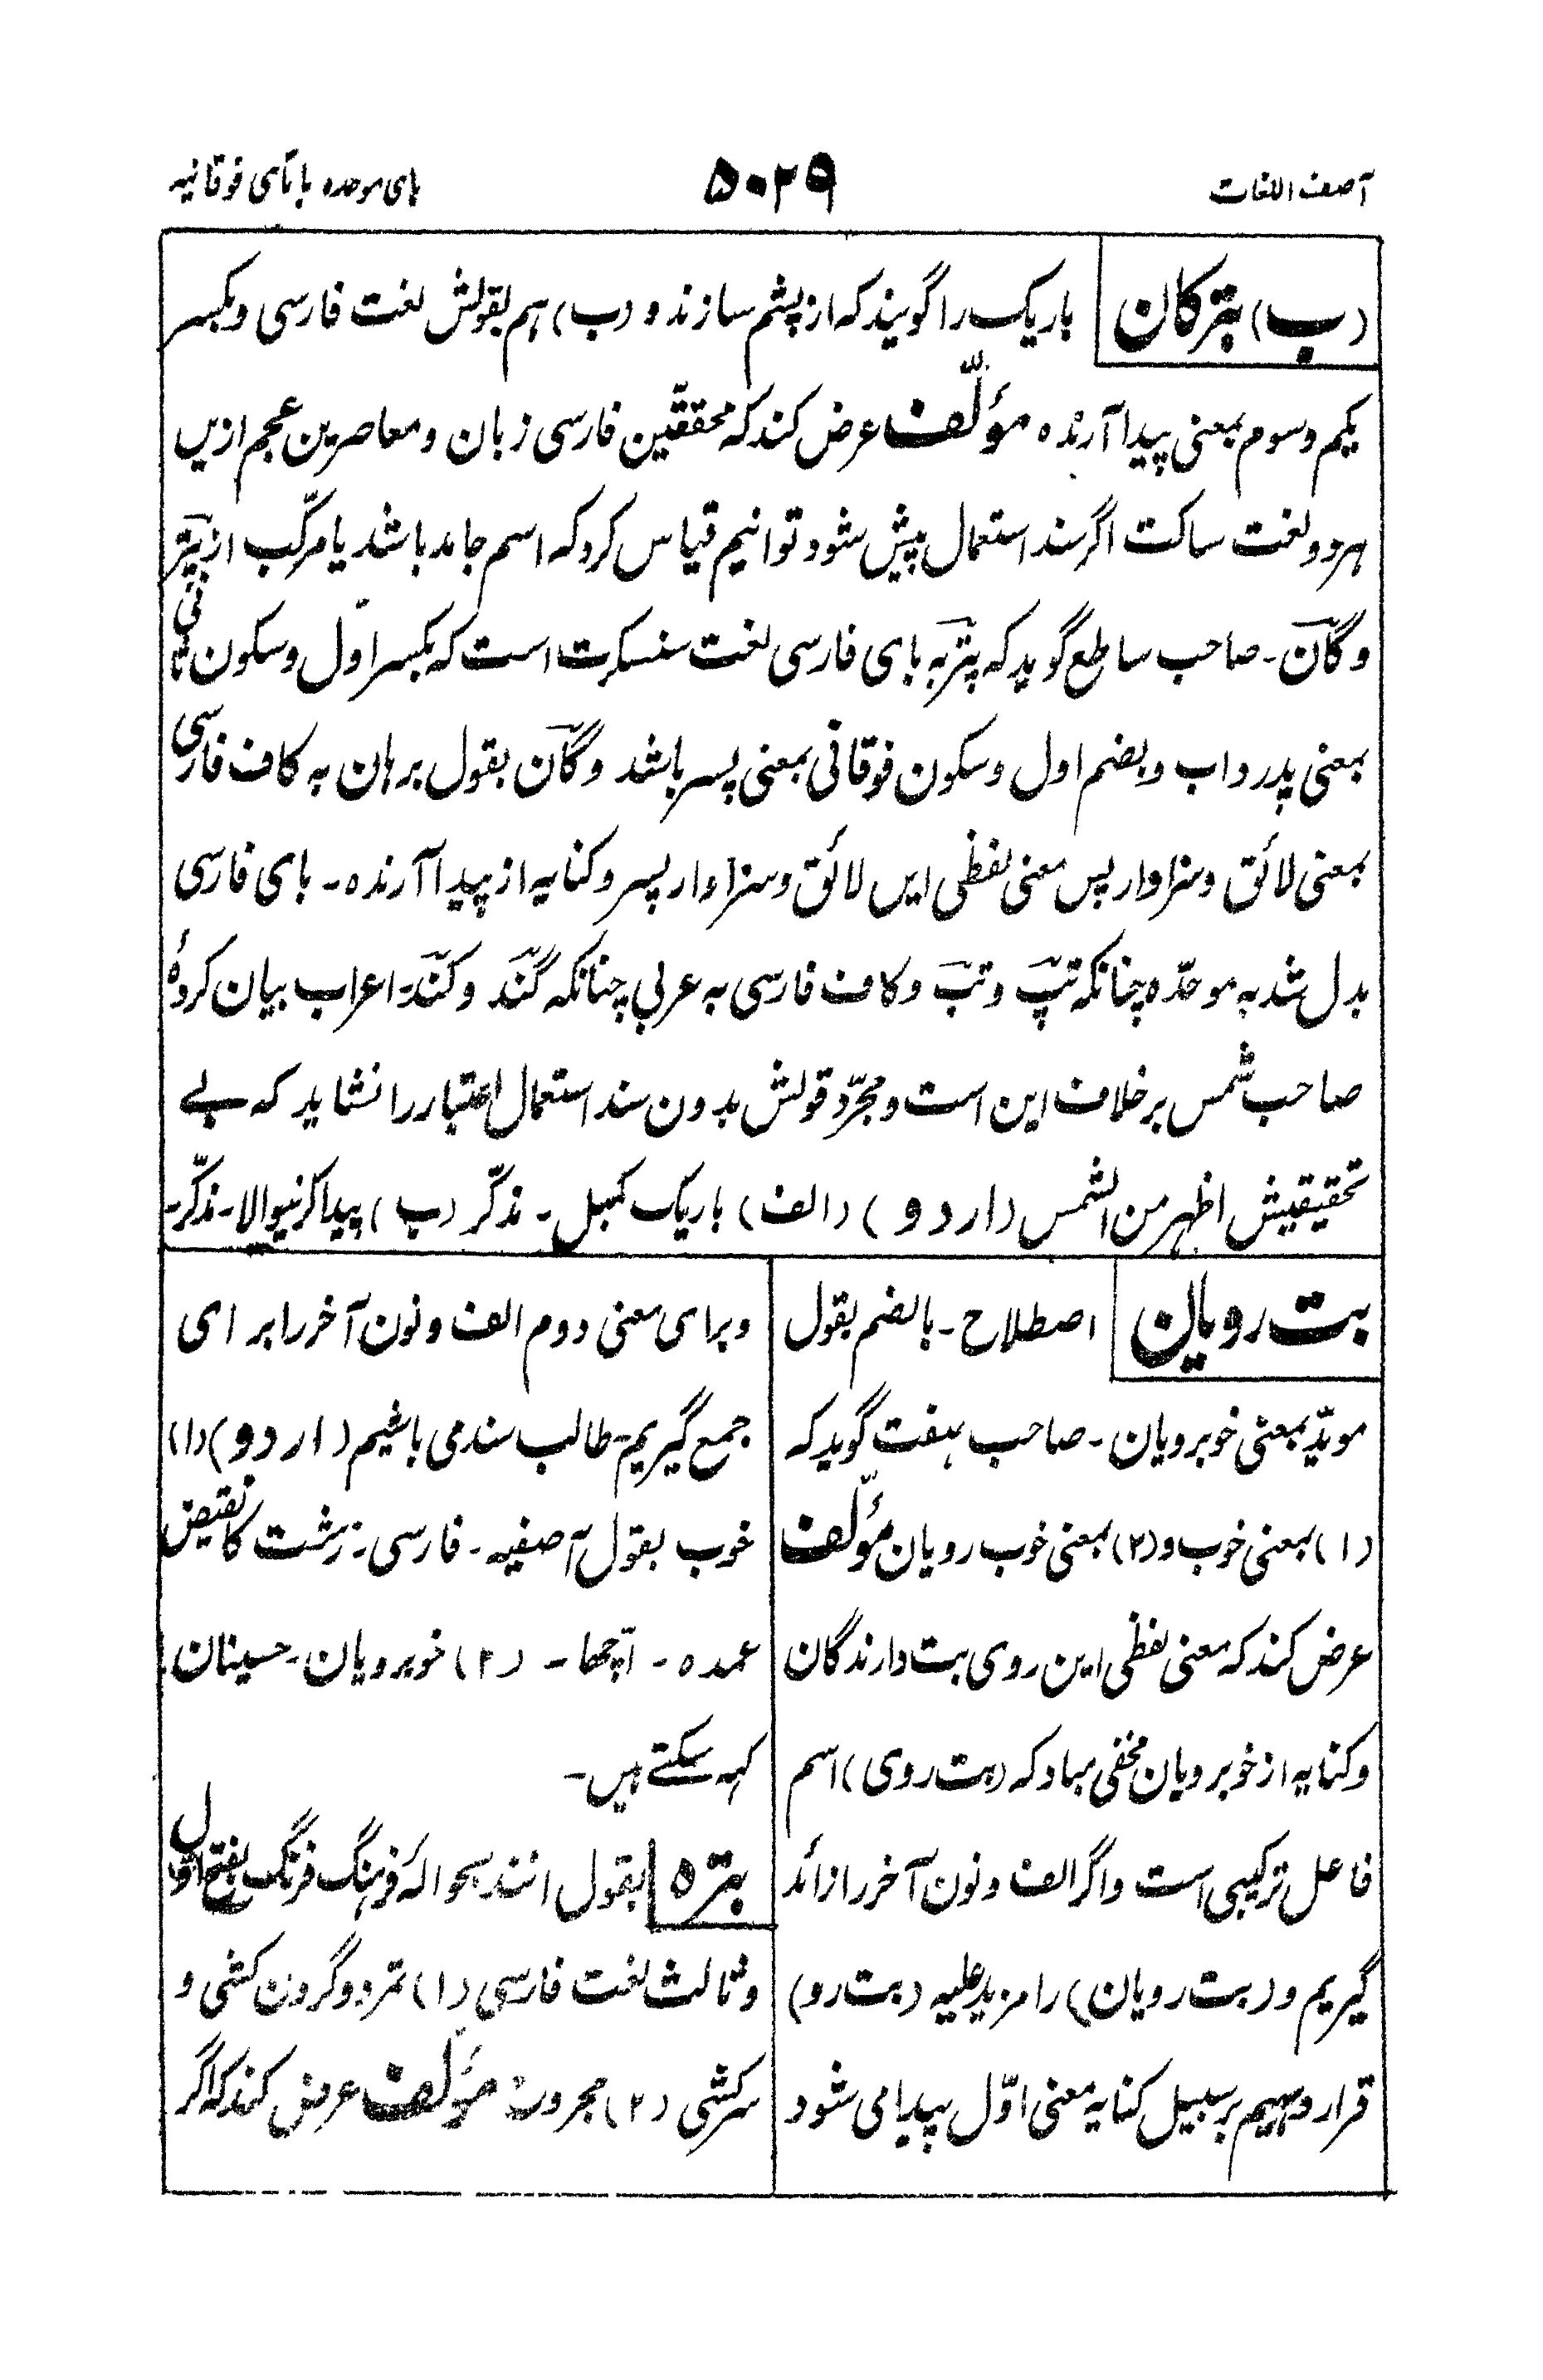 آصف اللغات
۵۰۲۹
بای موحدہ باتای فوقانیہ
(ب) بترکان باریک را گویند کہ از پشم سازند و (ب) ہم بقولش لغت فارسی و بکسر
یکم و سوم بمعنی پیدا آرندہ مؤلّف عرض کند کہ محققّین فارسی زبان و معاصرین عجم ازیں
ہردو لغت ساکت اگر سند استعمال پیش شود توانیم قیاس کرد کہ اسم جامد باشد یا مرکّب از پتر
و گان۔ صاحب ساطع گوید کہ پتر بہ بای فارسی لغت سنسکرت است کہ بکسر اوّل و سکون ثانی
بمعنی پدر و اب و بضم اول و سکون فوقانی بمعنی پسر باشد و گان بقول برہان بہ کاف فارسی
بمعنی لائق و سزاوار پس معنی لفظی ایں لائق و سزاوار پسر و کنایہ از پیدا آرندہ۔ بای فارسی
بدل شد بہ موحدّہ چنانکہ تپ و تب و کاف فارسی بہ عربی چنانکہ گند و کند۔ اعراب بیان کردہٗ
صاحب شمس برخلاف این است و مجرّد قولش بدون سند استعمال اعتبار را نشاید کہ بے
تحقیقیش اظہر من الشمس (اردو) (الف) باریک کمبل۔ مذکّر (ب) پیدا کرنیوالا۔ مذکّر۔
بت رویان اصطلاح۔ بالضم بقول
مویّد بمعنی خوبرویان۔ صاحب ہفت گوید کہ
(۱) بمعنی خوب و (۲) بمعنی خوب رویان مؤلّف
عرض کند کہ معنی لفظی این روی بت دارندگان
و کنایہ از خوبرویان مخفی مباد کہ (بت روی) اسم
فاعل ترکیبی است و اگر الف و نون آخر را زائد
گیریم و (بت رویان) را مزید علیہ (بت رو)
قرار دہیم بر سبیل کنایہ معنی اوّل پیدا می شود
و برای معنی دوم الف و نون آخر را برای
جمع گیریم۔ طالب سند می باشیم (اردو) (۱)
خوب بقول آصفیہ۔ فارسی۔ زشت کا نقیض
عمدہ۔ اچّھا۔ (۲) خوبرویان۔ حسینان۔
کہہ سکتے ہیں۔
بترہ بقول انند بحوالہٗ فرہنگ فرنگ بفتح اول
و ثالث لغت فارسی (۱) تمرد و گردن کشی و
سرکشی (۲) مجروت مؤلّف عرض کند کہ اگر